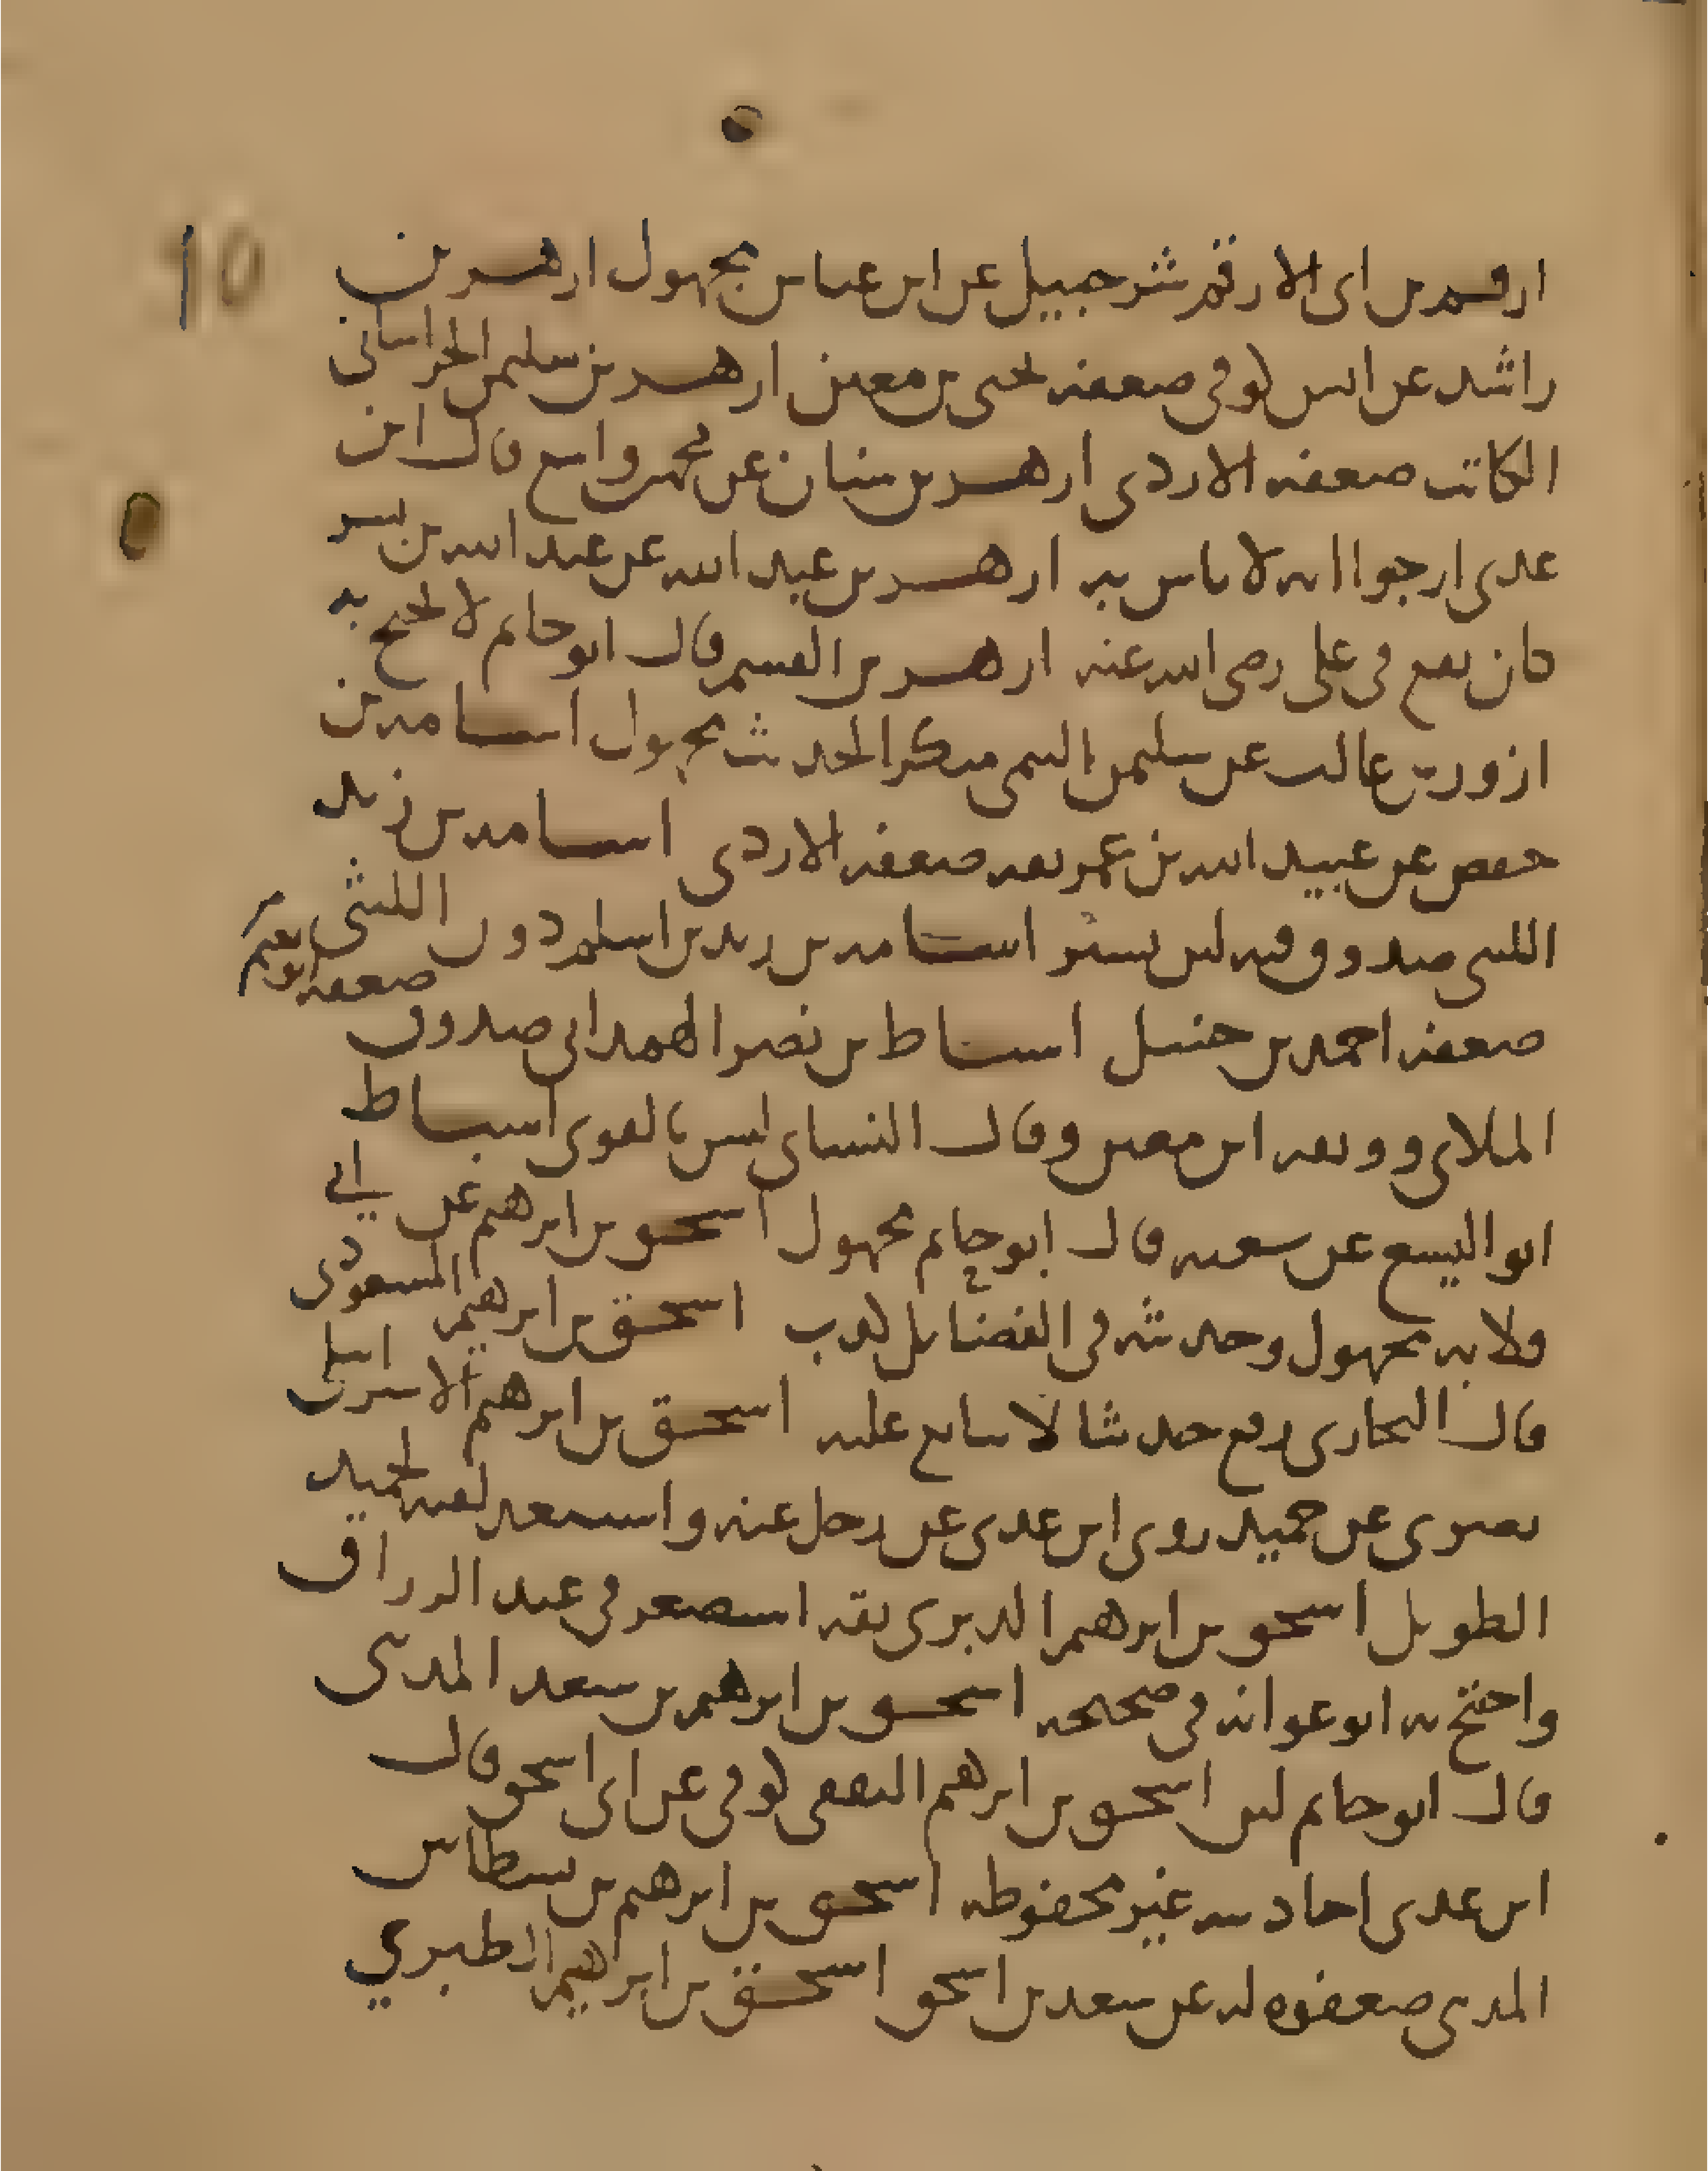 10
ارقم بن ابى الارقم شرحبيل عن ابن عباس مجهول ازهر بن
راشد عن انس كوفى ضعفه يحيى بن معين ازهر بن سليمن الخراسانى
الكاتب ضعفه الازدى ازهر بن سنان عن محمد بن واسع قال ابن
عدى ارجوا انه لا باس به ازهر بن عبد الله عن عبد الله بن بسر
كان يقع فى على رضى الله عنه ازهر بن القسم قال ابو حاتم لا يحتج به
ازور بن غالب عن سليمن التيمى منكر الحديث مجهول اسامه بن
حفص عن عبيد الله بن عمر ثقه ضعفه الازدى اسامه بن زيد
الليثى صدوق فيه لين يسير اسامه بن زيد بن اسلم دون الليثى
صعفه احمد بن حنبل اسباط بن نصر الهمدانى صدوق ضعفه ابو نعيم
الملاى ووثقه ابن معين وقال النساى ليس بالقوى اسباط
ابو اليسع عن سعبه قال ابو حاتم مجهول اسحق بن ابرهيم عن ابي
قلابه مجهول وحديثه فى الفضايل كذب اسحق بن ابرهيم المسعودى
قال البخارى رفع حديثا لا يتابع عليه اسحق بن ابرهيم الاسرايلى
بصرى عن حميد روى ابن عدى عن رجل عنه واستبعد لقيه لحميد
الطويل اسحق بن ابرهيم الدبرى ثقه استصغر فى عبد الرزاق
واحتج به ابو عوانه فى صحيحه اسحق بن ابرهيم بن سعد المدنى
قال ابو حاتم لين اسحق بن ابرهيم الثقفى كوفى عن ابى اسحق قال
ابن عدى احاديثه غير محفوظه اسحق بن ابرهيم بن نسطاس
المدنى ضعفوه له عن سعد بن اسحق اسحق بن ابرهيم الطبري